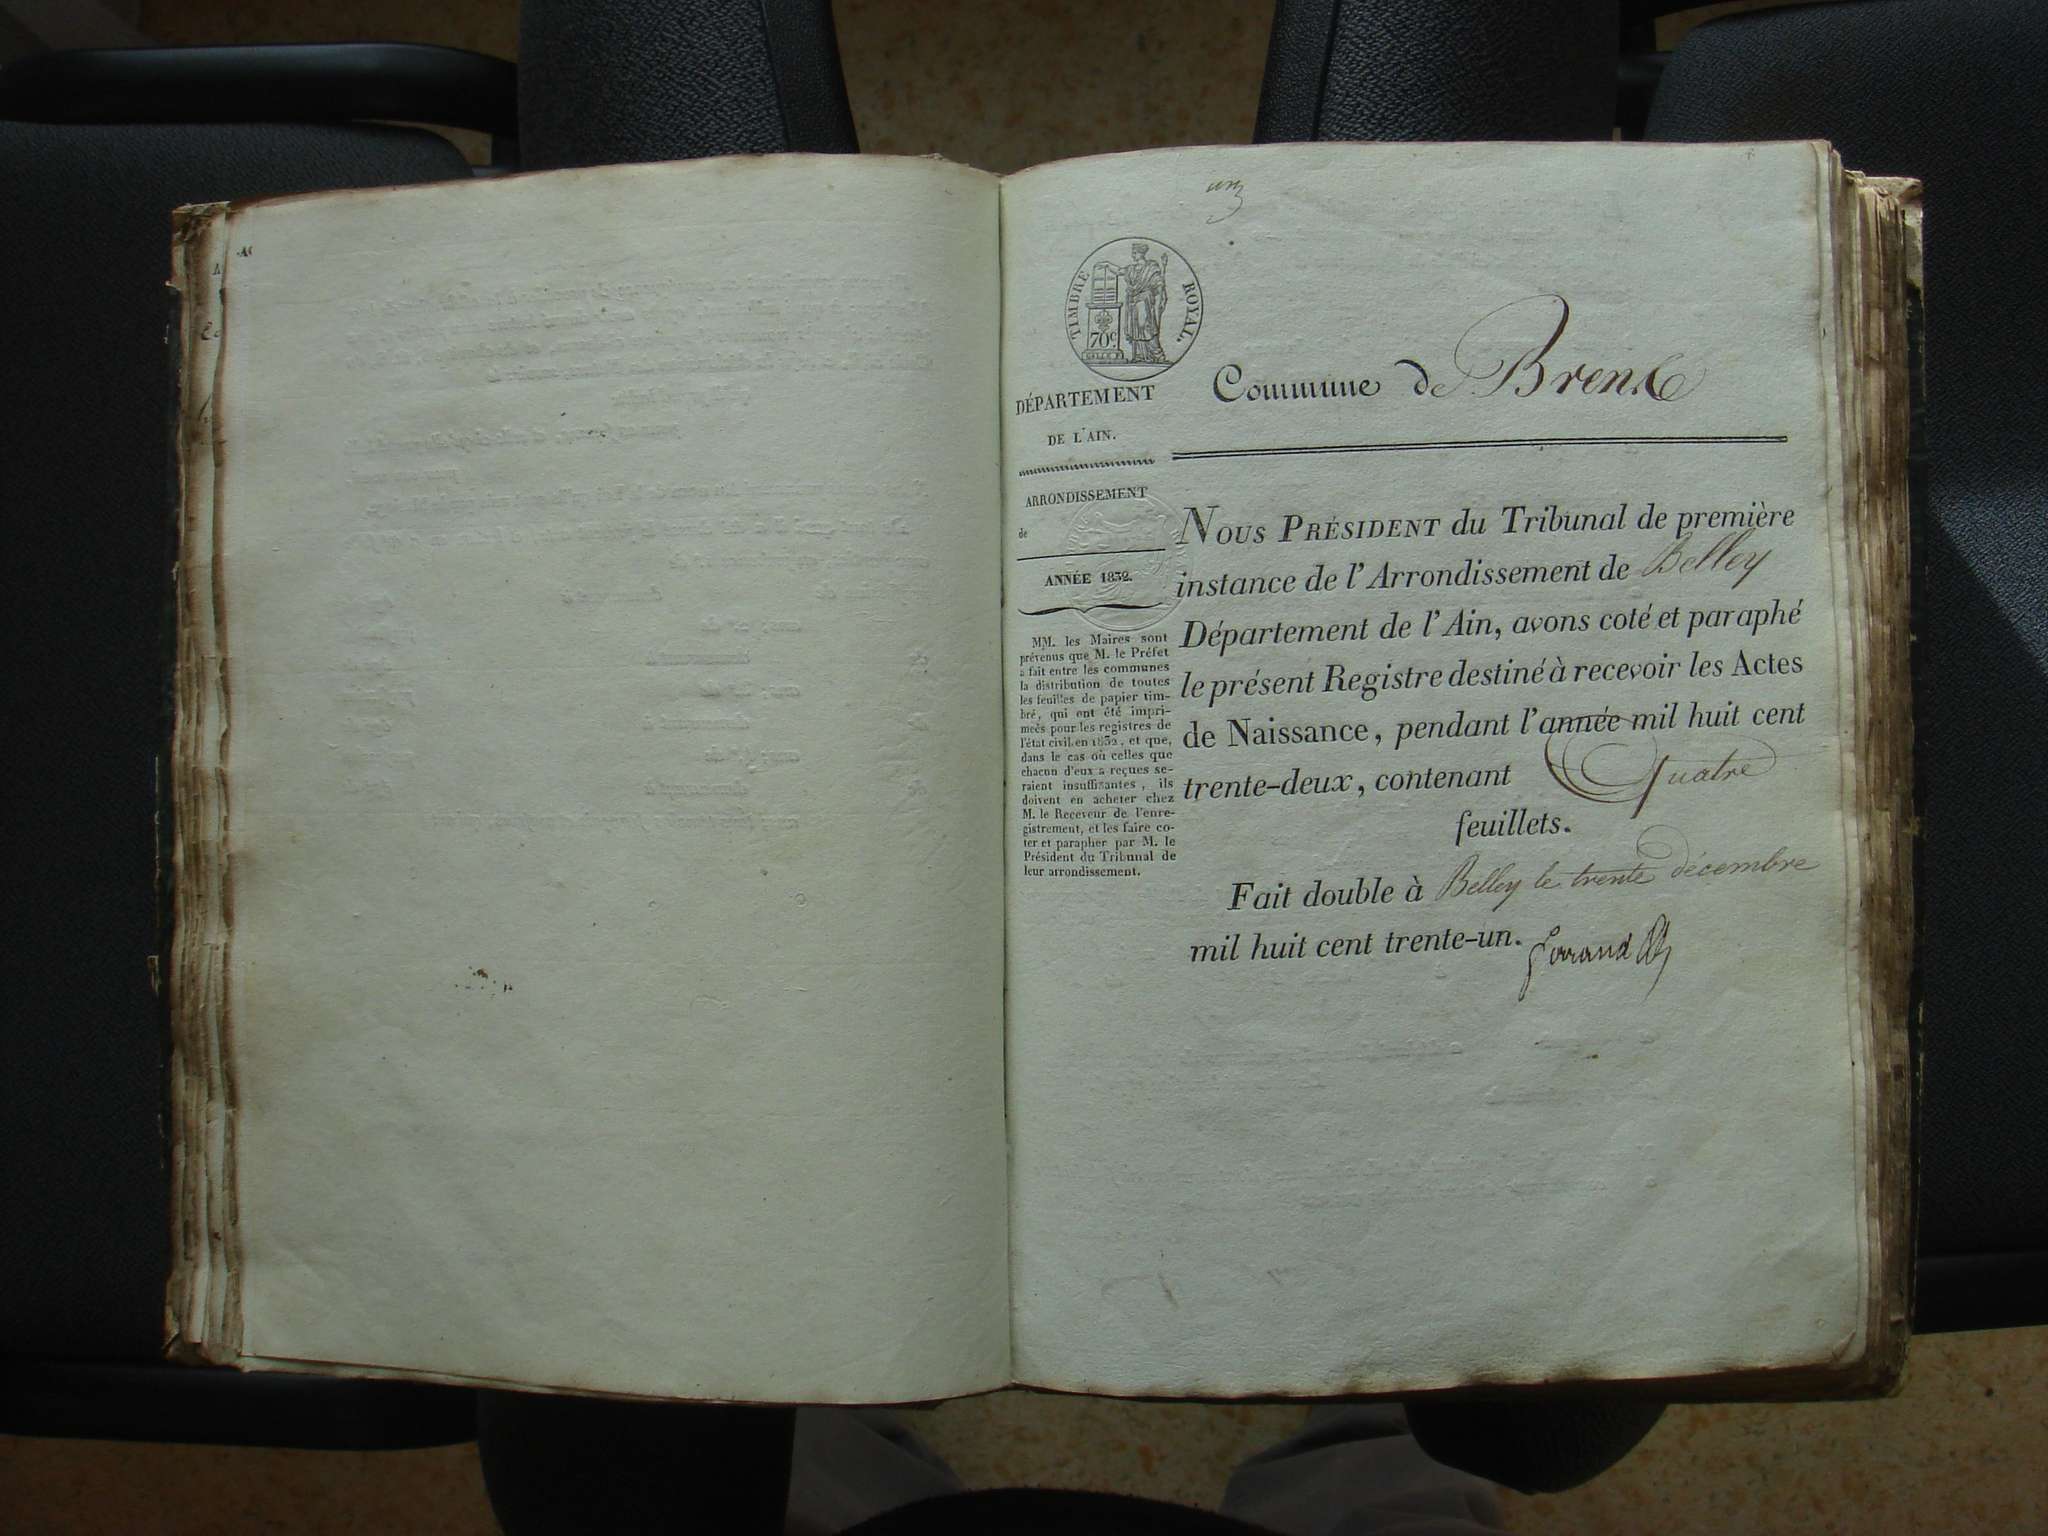 un
TIMBRE ROYAL.
70c
DÉPARTEMENT
DE L'AIN.
ARRONDISSEMENT
de
ANNÉE 1832.
MM. les Maires sont
prévenus que M. le Préfet
a fait entre les communes
la distribution de toutes
les feuilles de papier tim-
bré, qui ont été impri-
meés pour les registres de
l'état civil en 1832, et que,
dans le cas où celles que
chacun d'eux a reçues se-
raient insuffisantes, ils
doivent en acheter chez
M. le Receveur de l'enre-
gistrement, et les faire co-
ter et parapher par M. le
Président du Tribunal de
leur arrondissement.
Commune de Brens
NOUS PRÉSIDENT du Tribunal de première
instance de l'Arrondissement de Belley
Département de l'Ain, avons coté et paraphé
le présent Registre destiné à recevoir les Actes
de Naissance, pendant l'année mil huit cent
trente-deux, contenant Quatre
feuillets.
Fait double à Belley le trente décembre
mil huit cent trente-un.